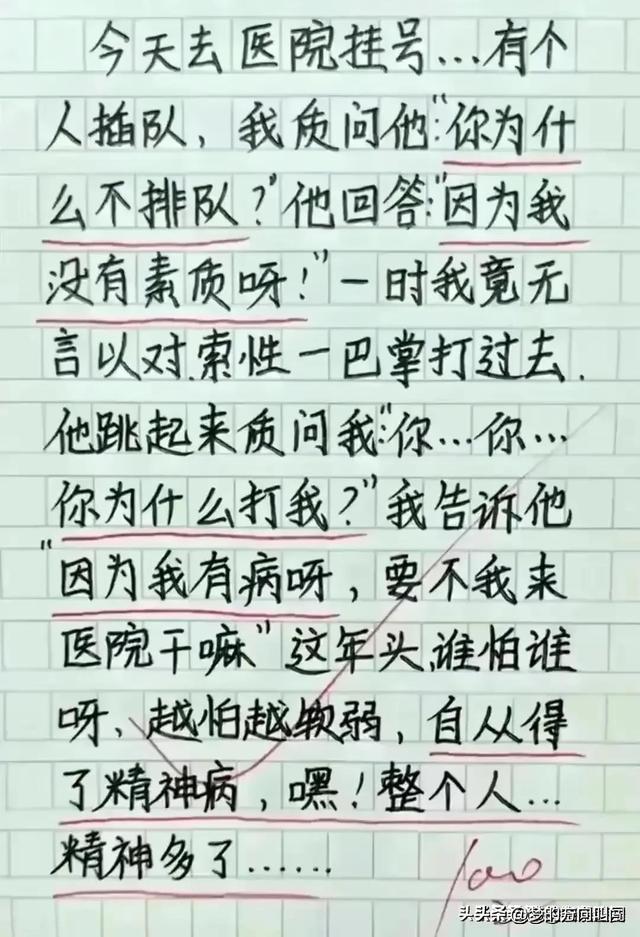 今天去医院挂号...有个
人插队，我质问他:"你为什
么不排队？"他回答:"因为我
没有素质呀！"一时我竟无
言以对.索性一巴掌打过去.
他跳起来质问我:"你...你...
你为什么打我？"我告诉他
"因为我有病呀，要不我来
医院干嘛"这年头,谁怕谁
呀、越怕越软弱，自从得
了精神病，嘿！整个人...
精神多了......
100